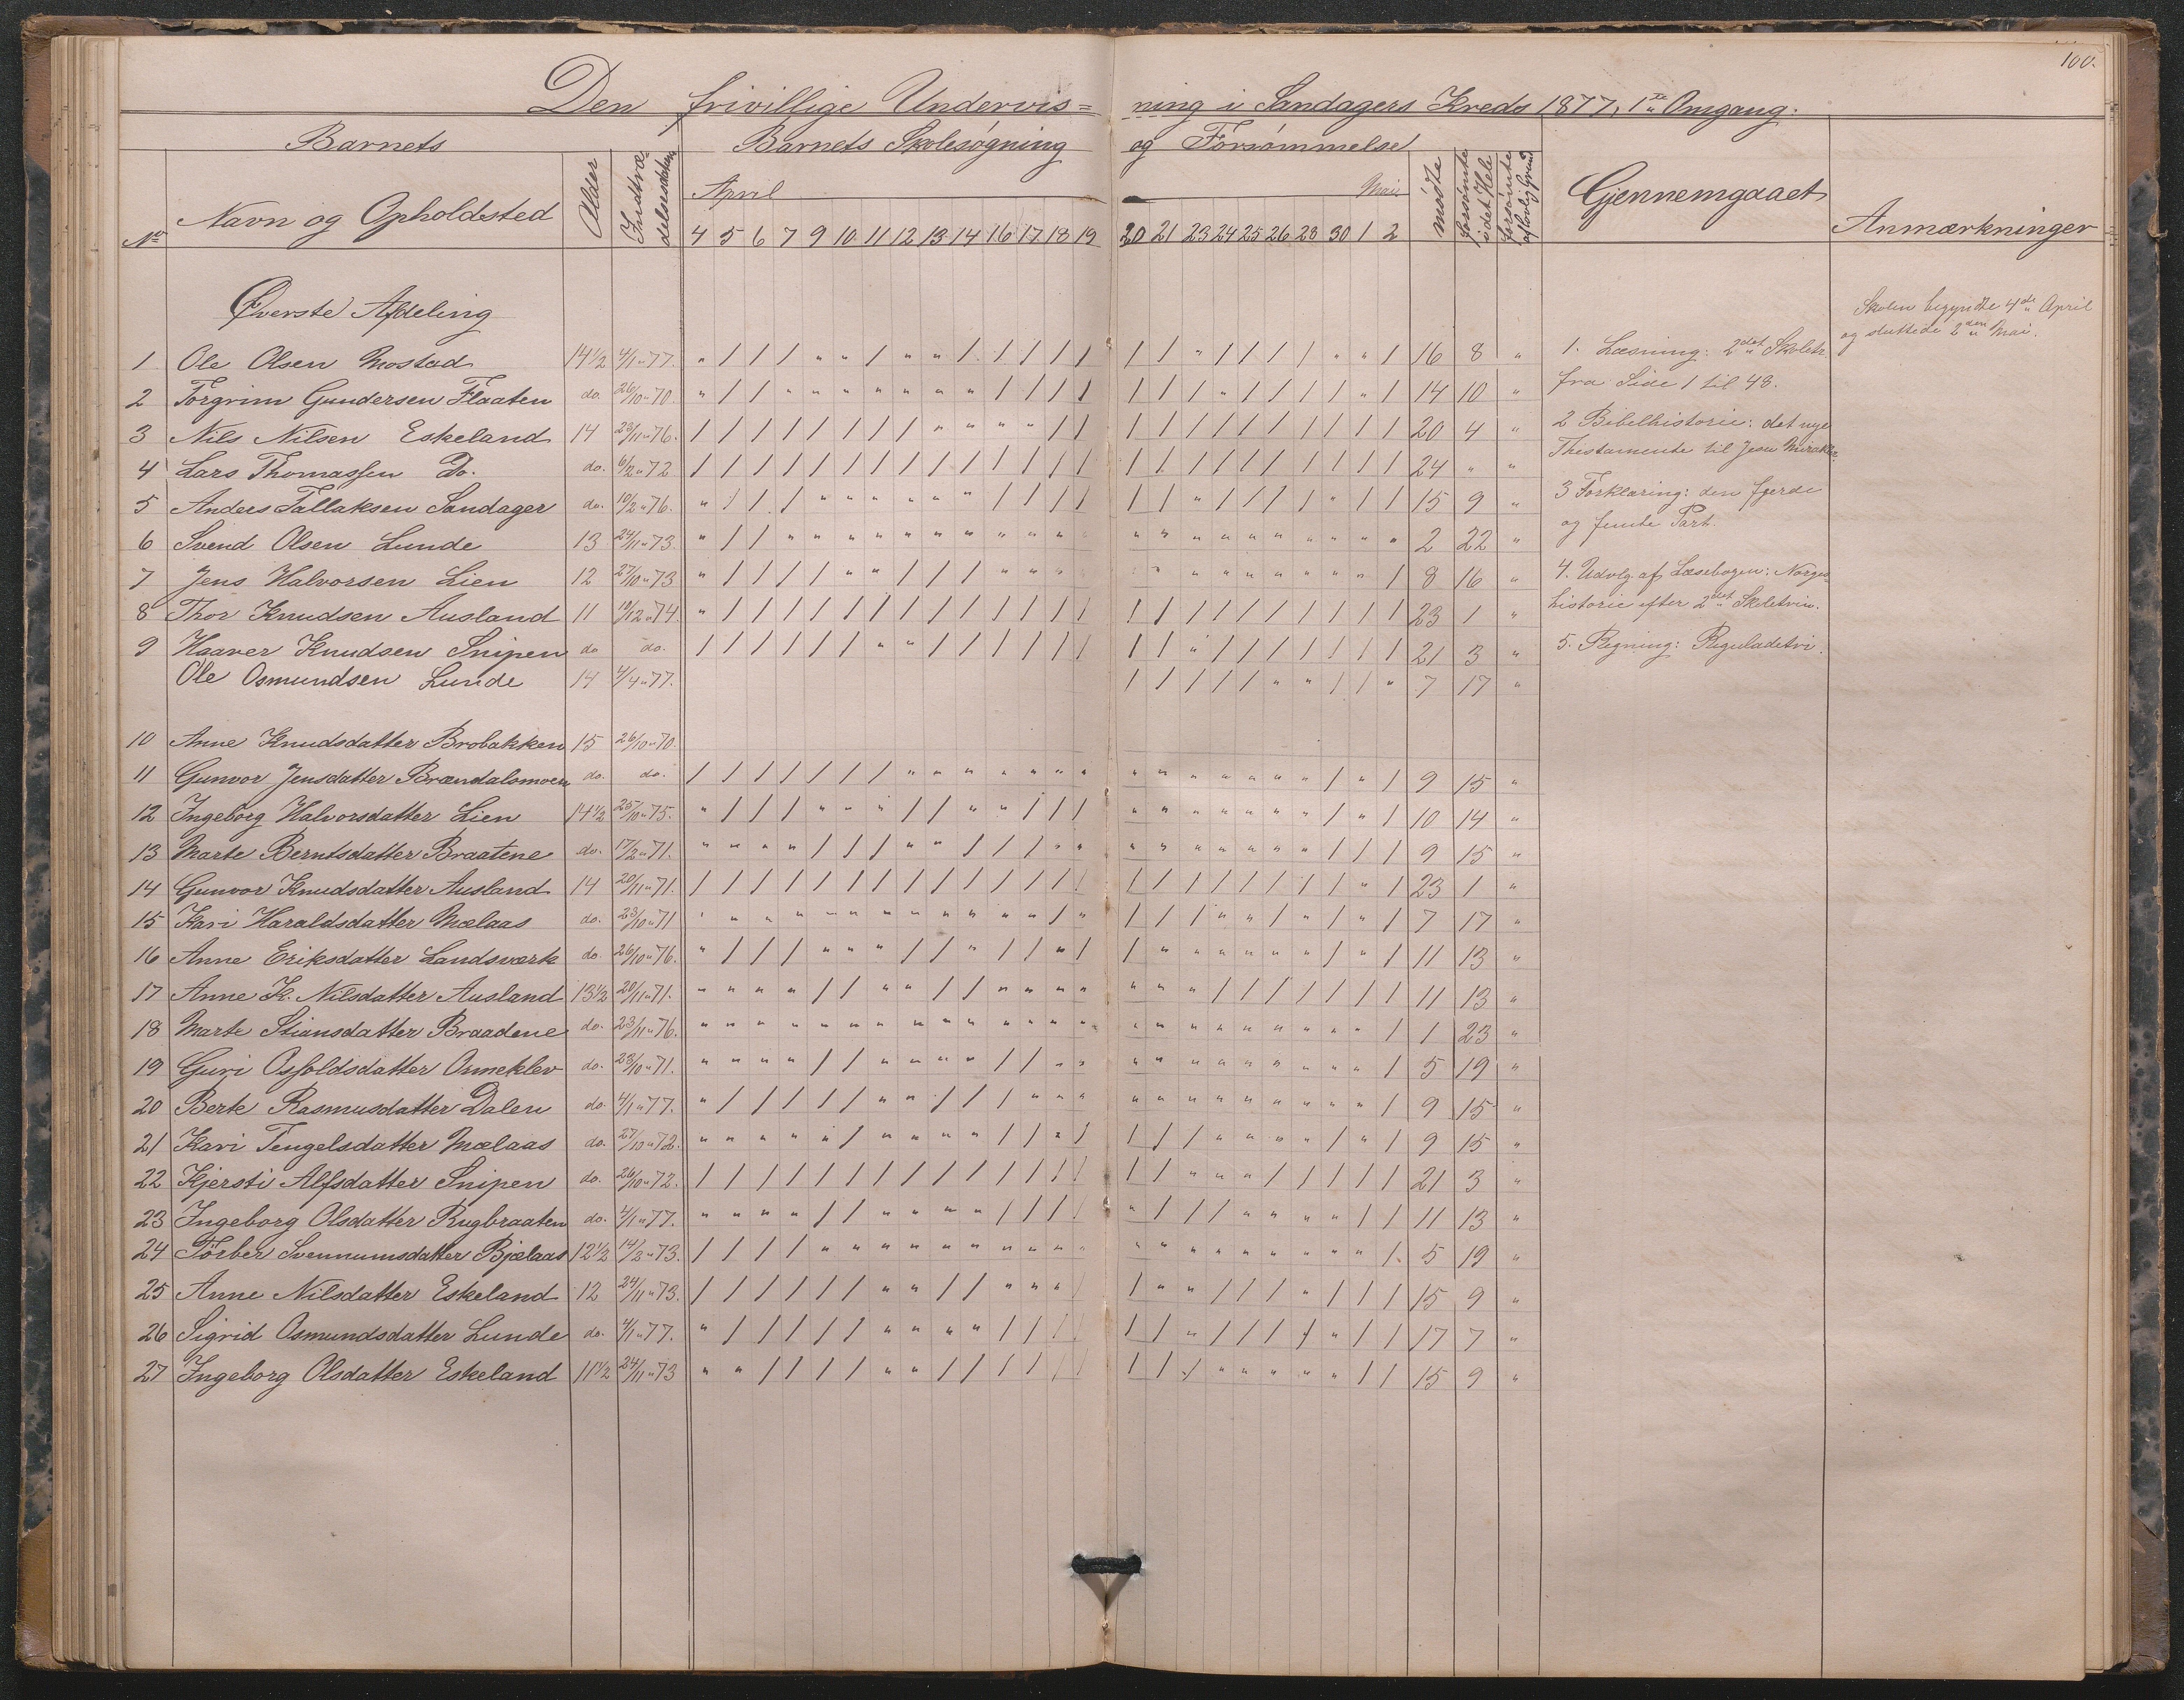 100.
Den frivillige Undervis= ning i Sandagers Kreds 1877, 1ste Omgang.
Barnets Barnets Skolesøgning og Forsømmelse
No Navn og Opholdssted Alder Indtrædelsesdatum April Mai mødte forsømte i det Hele forsømte af lovlig Grund Gjennemgaaet Anmærkninger
4 5 6 7 9 10 11 12 13 14 16 17 18 19 20 21 23 24 25 26 28 30 1 2
Øverste Afdeling
1 Ole Olsen Mostad 14½ 4/1 " 77. " / / / " " / " " / / / / / / / " / / / / " " / 16 8 "
2 Torgrim Gundersen Flaaten do. 26/10 " 70. " / / " " " " " " " / / / / / / / " / / / / " / 14 10 "
3 Nils Nilsen Eskeland 14 23/11 " 76. / / / / / / / / " " " " / / / / / / / / / / / / 20 4 "
4 Lars Thomassen Do. do. 6/2 " 72 / / / / / / / / / / / / / / / / / / / / / / / / 24 " "
5 Anders Tallaksen Sandager do. 10/2 " 76. " / / / " " " " " " / / / / / / " / / / / " / / 15 9 "
6 Svend Olsen Lunde 13 24/11 " 73. " / / " " " " " " " " " " " " " " " " " " " " " 2 22 "
7 Jens Halvorsen Lien 12 27/10 " 73 " / / / / " " / / / " " " " " " " " " " " " " / 8 16 "
8 Thor Knudsen Ausland 11 10/12 " 74. " / / / / / / / / / / / / / / / / / / / / / / / 23 1 "
9 Haaver Knudsen Snipen do do. / / / / / / " " / / / / / / / / " / / / / / / / 21 3 "
Ole Osmundsen Lunde 14 4/4 " 77. / / / / / " " / / " 7 17 "
10 Anne Knudsdatter Brobakken 15 26/10 " 70.
11 Gunvor Jensdatter Brændalsmoen do. do. / / / / / / / " " " " " " " " " " " " " " / " / 9 15 "
12 Ingeborg Halvorsdatter Lien 14½ 25/10 " 75. " / / / " " " / / " " / / / " " " " " " " / " / 10 14 "
13 Marte Berntsdatter Braatene do. 17/2 " 71. " " " " / / / " " / / / " " " " " " " " " / / / 9 15 "
14 Gunvor Knudsdatter Ausland 14 20/11 " 71. / / / / / / / / / / / / / / / / / / / / / / " / 23 1 "
15 Kari Haraldsdatter Mælaas do. 23/10 " 71 " " " " " " " " " " " " / " / / / " " / " / " / 7 17 "
16 Anne Eriksdatter Landsværk do. 26/10 " 76. " / / / " " " / / " / / " / / " " " " " " / " / 11 13 "
17 Anne K. Nilsdatter Ausland 13½ 20/11 " 71. " " " " / / " " / / " " " " " " " / / / / / / / 11 13 "
18 Marte Stiansdatter Braadene do. 23/11 " 76. " " " " " " " " " " " " " " " " " " " " " " " / 1 23 "
19 Guri Osfoldsdatter Ormeklev do. 23/10 " 71. " " " " / / " " " " / / " " " " " " " " " " " / 5 19 "
20 Berte Rasmusdatter Dalen do. 4/1 " 77. " / / / / / " " / / / " " " " " " " " " " " " / 9 15 "
21 Kari Tengelsdatter Mælaas do. 27/10 " 72. " " " " " / " " " " / / " / / / / " " " " / " / 9 15 "
22 Kjersti Alfsdatter Snipen do. 26/10 " 72. / / / / / / / / / / / / / / / / " " " / / / / / 21 3 "
23 Ingeborg Olsdatter Rugbraaten do. 4/1 " 77. " " " " / / " " " " / / / / " / / / " " " " / / 11 13 "
24 Torber Svennumsdatter Bjælaas 12½ 14/2 " 73. / / / / " " " " " " " " " " " " " " " " " " " / 5 19 "
25 Anne Nilsdatter Eskeland 12 24/11 " 73. / / / / / / " " / / " " " / / " " / / / " / / / 15 9 "
26 Sigrid Osmundsdatter Lunde do. 4/1 " 77. " / / / / / " " " " / / / / / / " / / / / " / / 17 7 "
27 Ingeborg Olsdatter Eskeland 11½ 24/11 " 73 " " / / / / " " / / / / / / / / / " " " " " / / 15 9 "
1. Læsning: 2det Skoletr.
fra Side 1 til 48.
2 Bibelhistorie: det nye
Thestamente til Jesu Mirakler.
3 Forklaring: den fjerde
og femte Part.
4. Udvlg. af Læsebogen: Norges
Historie efter 2det Skoletrin.
5. Regning: Reguladetri.
Skolen begyndte 4de April
og sluttede 2den Mai.